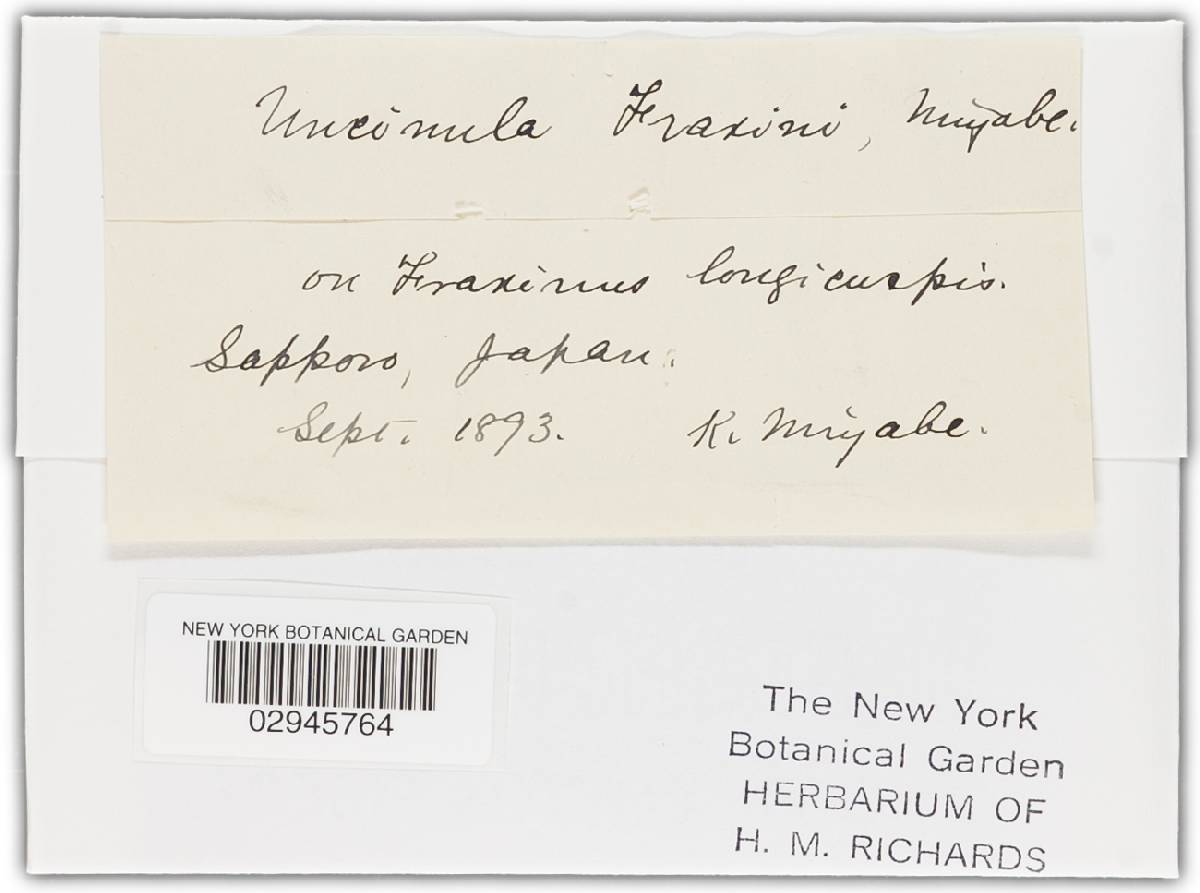 Uncinula Fraxini, Miyabe.
on Fraxinus longicuspis.
Sapporo, Japan.
Sept. 1893. K. Miyabe.
NEW YORK BOTANICAL GARDEN
02945764
The New York
Botanical Garden
HERBARIUM OF
H. M. RICHARDS